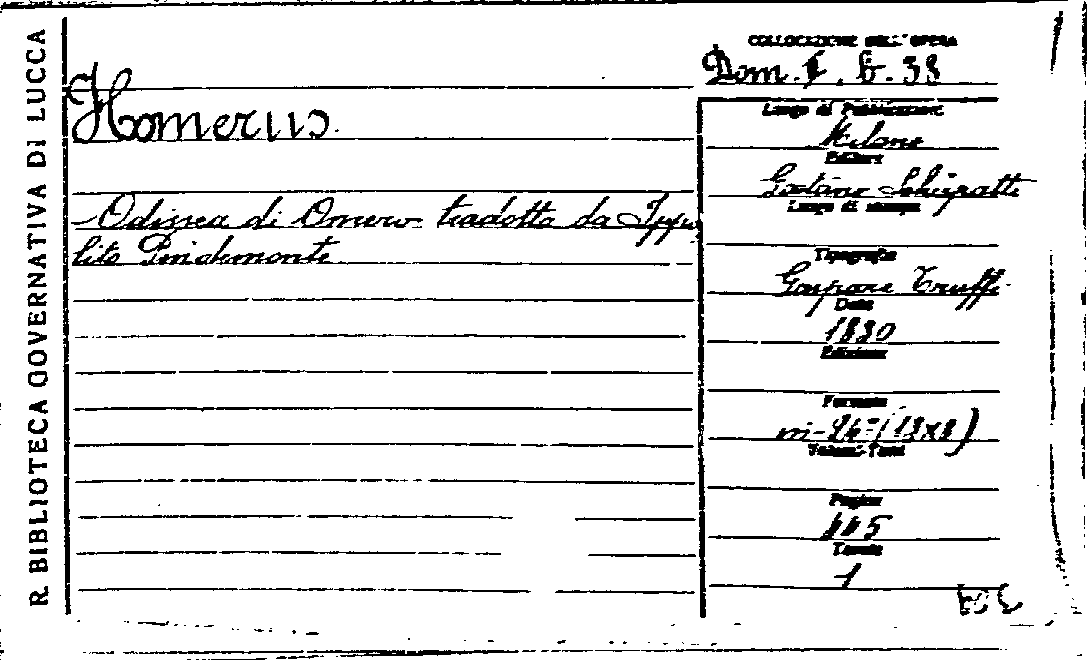 R. BIBLIOTECA GOVERNATIVA DI LUCCA
COLLOCAZIONE DELL'OPERA
Dom. I. b. 33
Homerus.
Luogo di Pubblicazione
Milano
Editore
Gaetano Schiepatti
Luogo di stampa
Odissea di Omero tradotta da Ippo
lito Pindemonte
Tipografia
Gaspare Truffi
Data
1830
Edizione
Formato
in-24° (13x8)
Volumi-Tomi
Pagine
445
Tavole
1